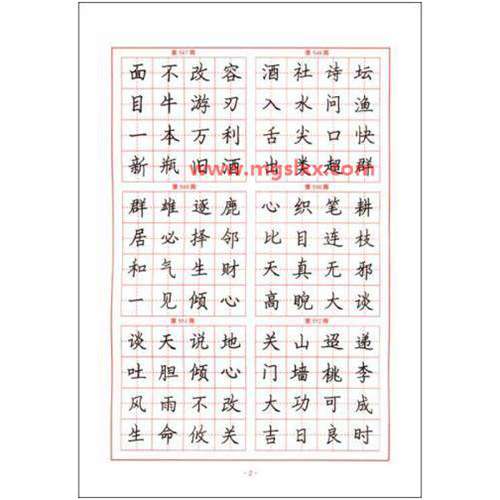 面不改容
目牛游刃
一本万利
新瓶旧酒
酒社诗坛
入水问渔
舌尖口快
出类超群
www.mgslxx.com
群雄逐鹿
居必择邻
和气生财
一见倾心
心织笔耕
比目连枝
天真无邪
高睨大谈
谈天说地
吐胆倾心
风雨不改
生命攸关
关山迢递
门墙桃李
大功可成
吉日良时
- 2 -